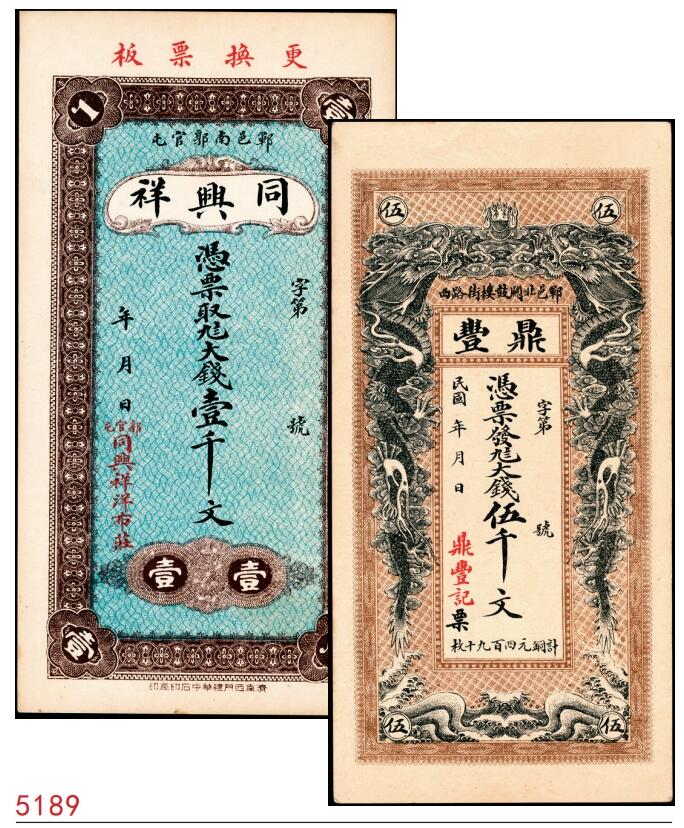 更換票板
壹
鄆邑南郭官屯
同興祥
字第 號
憑票取九八大錢壹千文
年 月 日
郭官屯
同興祥洋布莊
壹 壹
壹
濟南西門裡華中石印局印
伍 伍
鄆邑北關鼓樓街路西
鼎豐
字第 號
憑票發九八大錢伍千文
民國 年 月 日
鼎豐記票
計銅元四百九十枚
伍 伍
5189